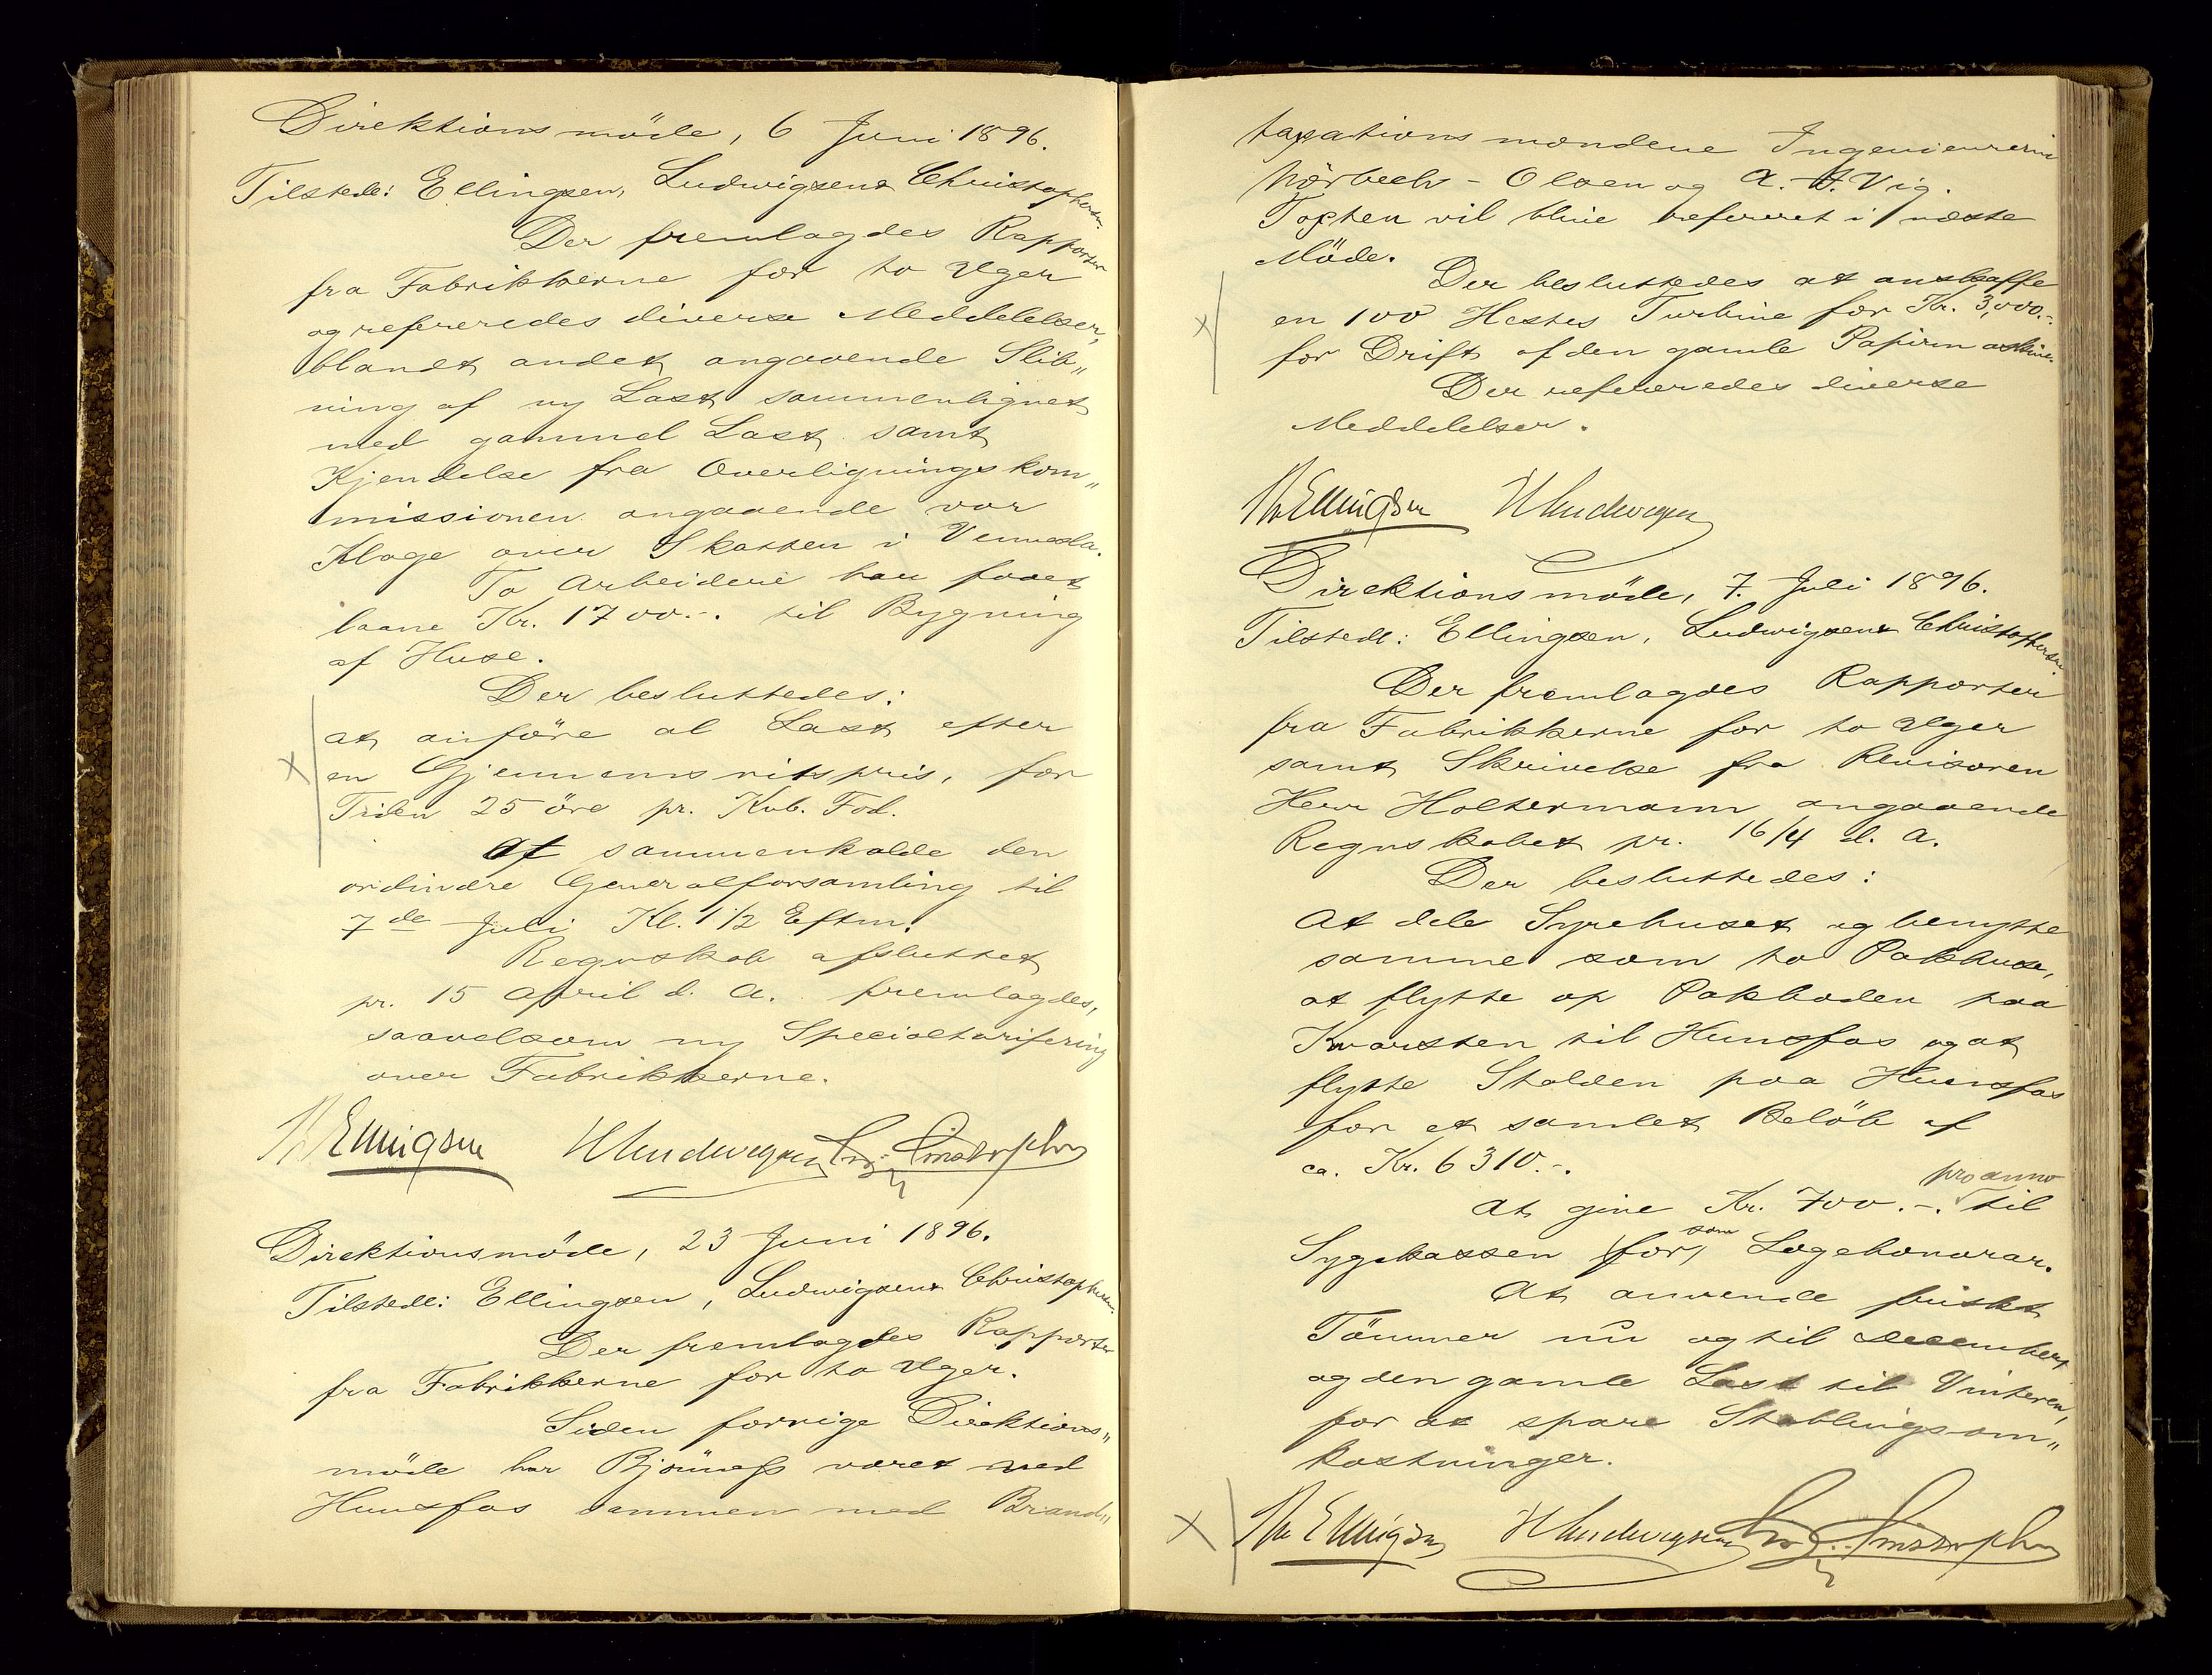 Direktionsmöde, 6 Juni 1896.
Tilstede: Ellingsen, Ludwigsen & Christophersen.
Der fremlagdes Rapporter
fra Fabrikkerne for to Uger
og refereredes diverse Meddelelser,
blandt andet angaaende Slib„
ning af ny Last sammenlignet
med gammel Last samt
Kjendelse fra Overligningskom„
missionen angaaende vor
Klage over Skatten i Vennesla.
To Arbeidere har faaet
laane Kr. 1700.-. til Bygning
af Huse.
Der besluttedes:
at anföre al Last efter
en Gjennemsnitspris, for
Tiden 25 öre pr. Kub. Fod.
At sammenkalde den
ordinære Generalforsamling til
7de Juli Kl. 1 1/2 Eftm.
Regnskab afsluttet
pr. 15 April d. A. fremlagdes,
saavelsom ny Specialtarifering
over Fabrikkerne.
Th Ellingsen HLudwigsen Chr. Christophersen
Direktionsmöde, 23 Juni 1896.
Tilstede: Ellingsen, Ludwigsen & Christophersen.
Der fremlagdes Rapporter
fra Fabrikkerne for to Uger.
Siden forrige Direktions„
möde har Björness været ved
Hunsfos sammen med Brand„
taxationsmændene Ingeniørerne
Nörbech-Olsen og A. Vig.
Taxten vil blive referert i næste
Möde.
Der besluttedes at anskaffe
en 100 Hestes Turbine for Kr. 3,000.-.
for Drift af den gamle Papirmaskine.
Der refereredes diverse
Meddelelser.
Th Ellingsen HLudwigsen
Direktionsmöde, 7. Juli 1896.
Tilstede: Ellingsen, Ludwigsen & Christophersen
Der fremlagdes Rapporter
fra Fabrikkerne for to Uger
samt Skrivelse fra Revisoren
Herr Holtermann angaaende
Regnskabet pr. 16/4 d. A.
Der besluttedes:
At dele Syrehuset og benytte
samme som to Pakhuse,
at flytte op Pakboden paa
Kvarsten til Hunsfos og at
flytte Stalden paa Hunsfos
for et samlet Belöb af
ca. Kr. 6310.-.
pro anno
At give Kr. 700.-. til
som
Sygekassen for Lægehonorar.
At anvende friskt
Tömmer nu og til December,
og den gamle Last til Vinteren,
for at spare Stablingsom„
kostninger.
Th Ellingsen HLudwigsen Chr. Christophersen